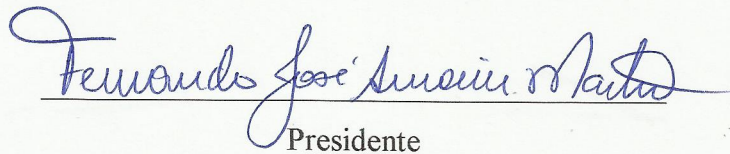 Fernando José Amorim Martins
Presidente